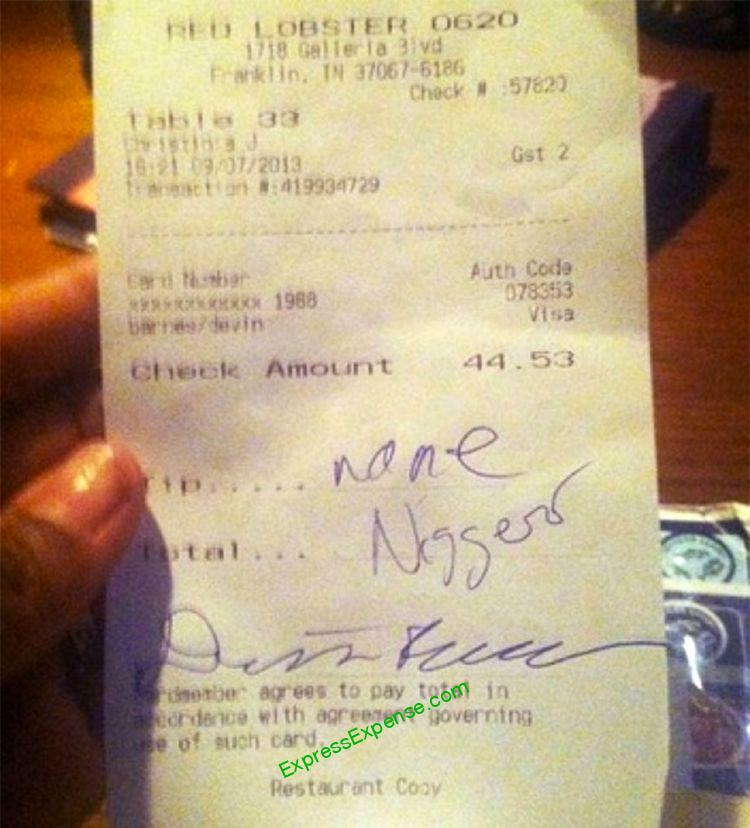 RED LOBSTER 0620
1718 Galleria Blvd
Franklin, TN 37067-6186
Check # :57820
Table 33
Christina J
Gst 2
16:21 09/07/2013
Transaction #:419934729
Card Number
Auth Code
xxxxxxxxxxxx 1988
078353
barnes/devin
Visa
Check Amount 44.53
Tip..... none
Total... Nigger
Cardmember agrees to pay total in
accordance with agreement governing
use of such card.
ExpressExpense.com
Restaurant Copy